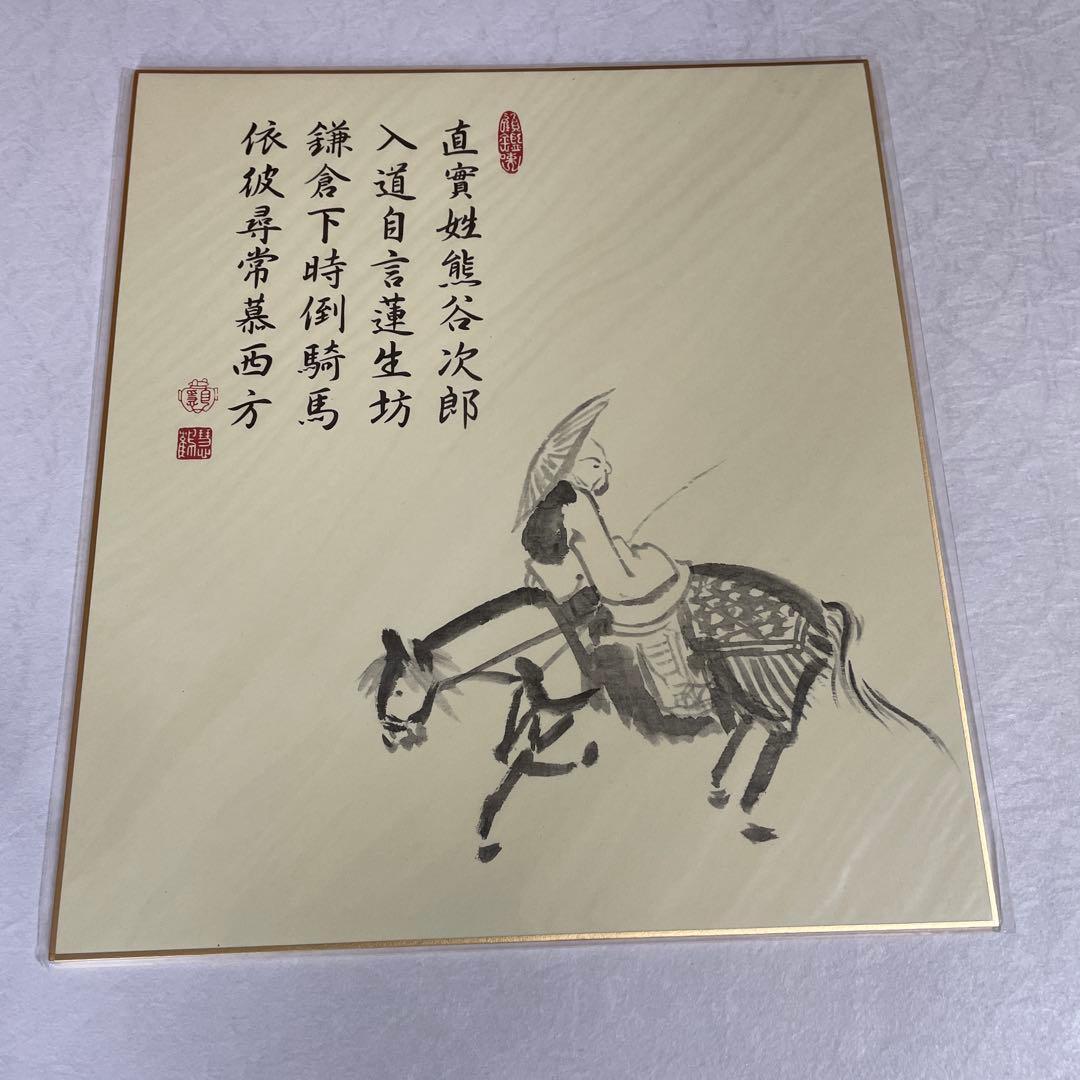 直實姓熊谷次郎
入道自言蓮生坊
鎌倉下時倒騎馬
依彼尋常慕西方